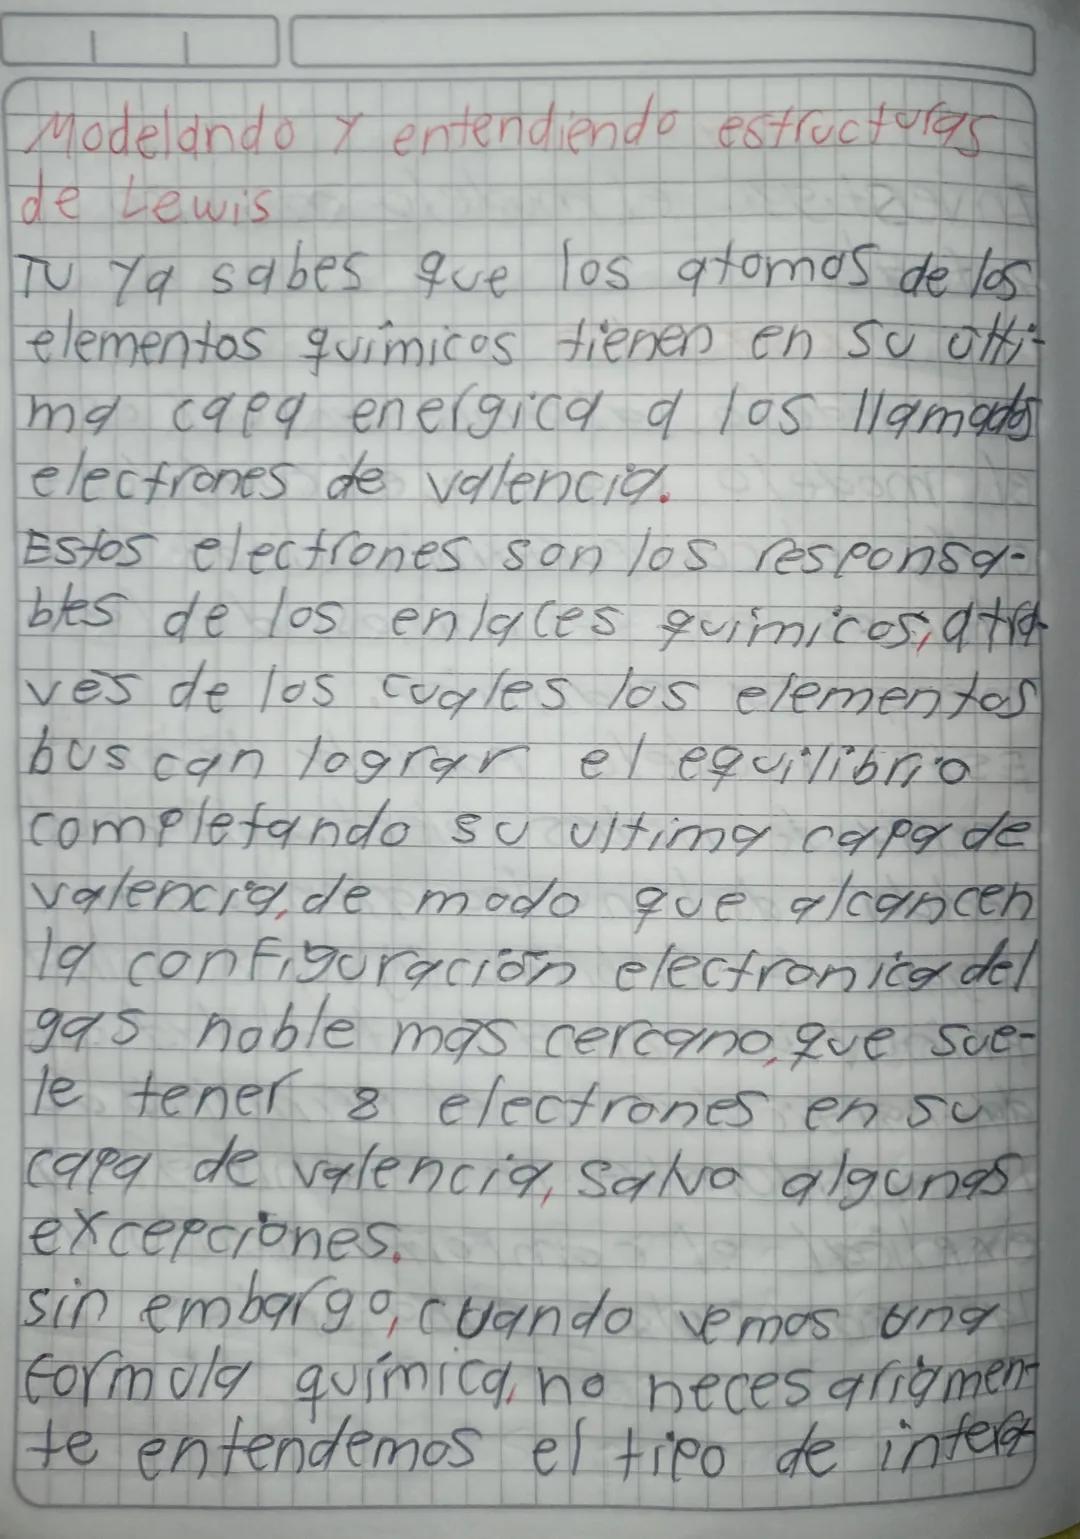 Modelando y entendiendo estructuras
de Lewis
TU Ya sabes que los atomos de los
elementos químicos tienen en su últi-
ma capa energica a los llamados
electrones de valencia.
Estos electrones son los responsa-
bles de los enlaces quimicos, atra
ves de los cuales los elementos
buscan lograr el equilibrio
completando su ultima capa de
valencia, de modo que alcancen
la configuración electronica del
gas noble mas cercano, que sue-
le tener 8 electrones en su
capa de valencia, salvo algunas
excepciones.
sin embargo, cuando vemos una
formula química, no necesariamen-
te entendemos el tipo de intera